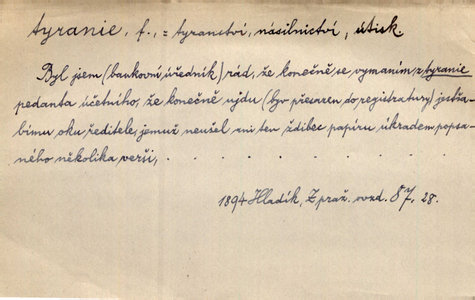 tyranie, f., = tyranství, násilnictví, útisk.
Byl jsem (bankovní úředník) rád, že konečně se vymaním z tyranie
pedanta účetního, že konečně ujdu (byv přesazen do registratury) jestřá-
bímu oku ředitele, jemuž neušel ani ten ždibec papíru úkradem popsa-
ného několika verši, . . . . . . . .
1894 Hladík, Z praž. ovzd. 87, 28.